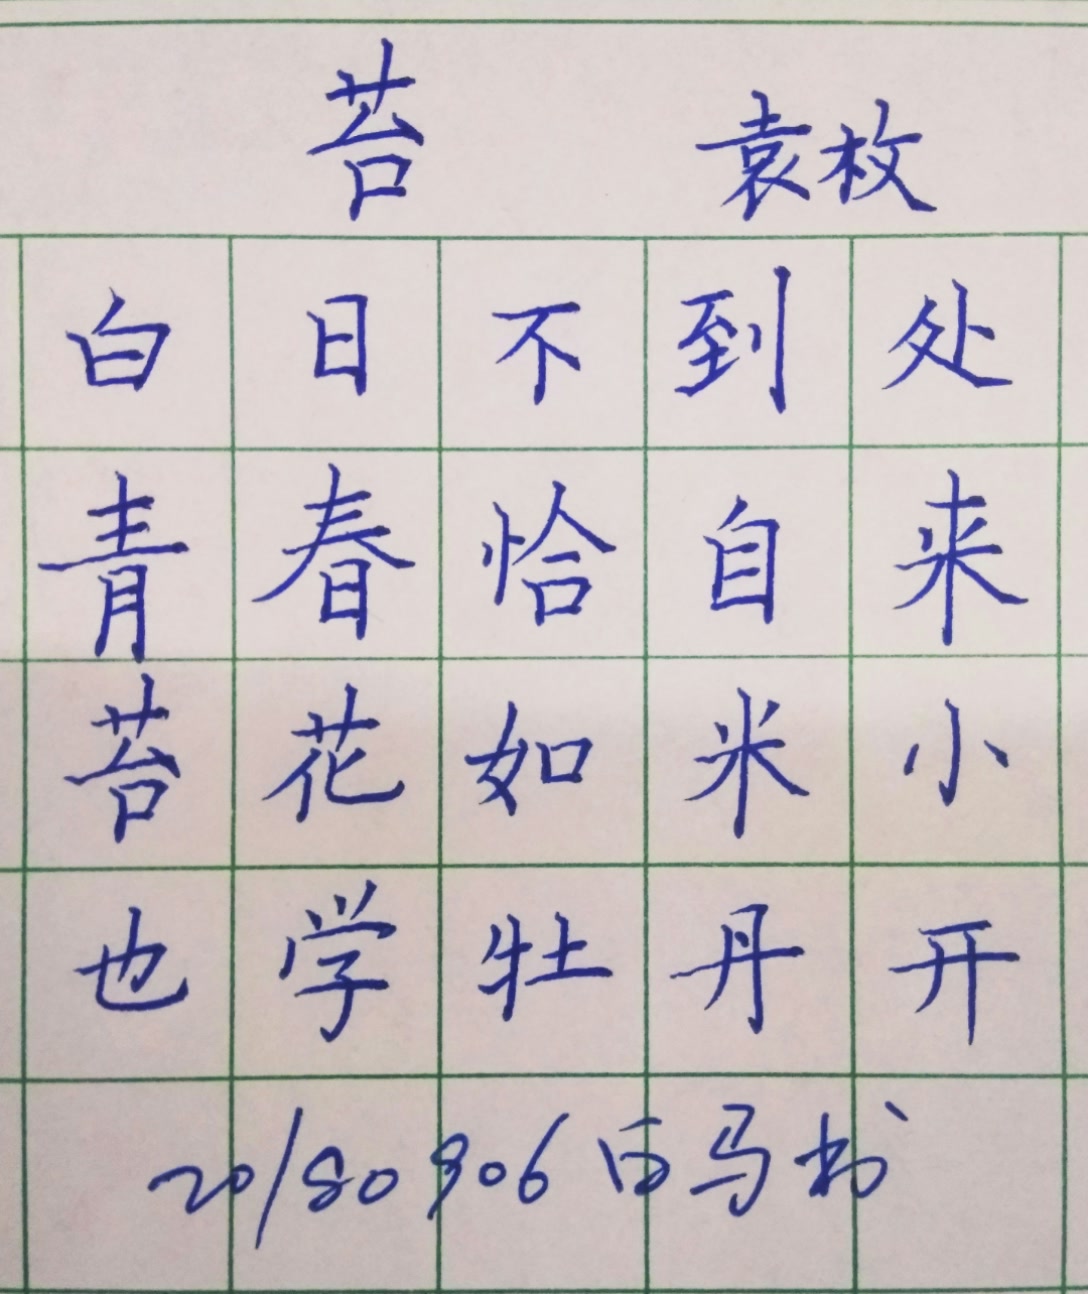 苔 袁枚
白日不到处
青春恰自来
苔花如米小
也学牡丹开
20180906白马书